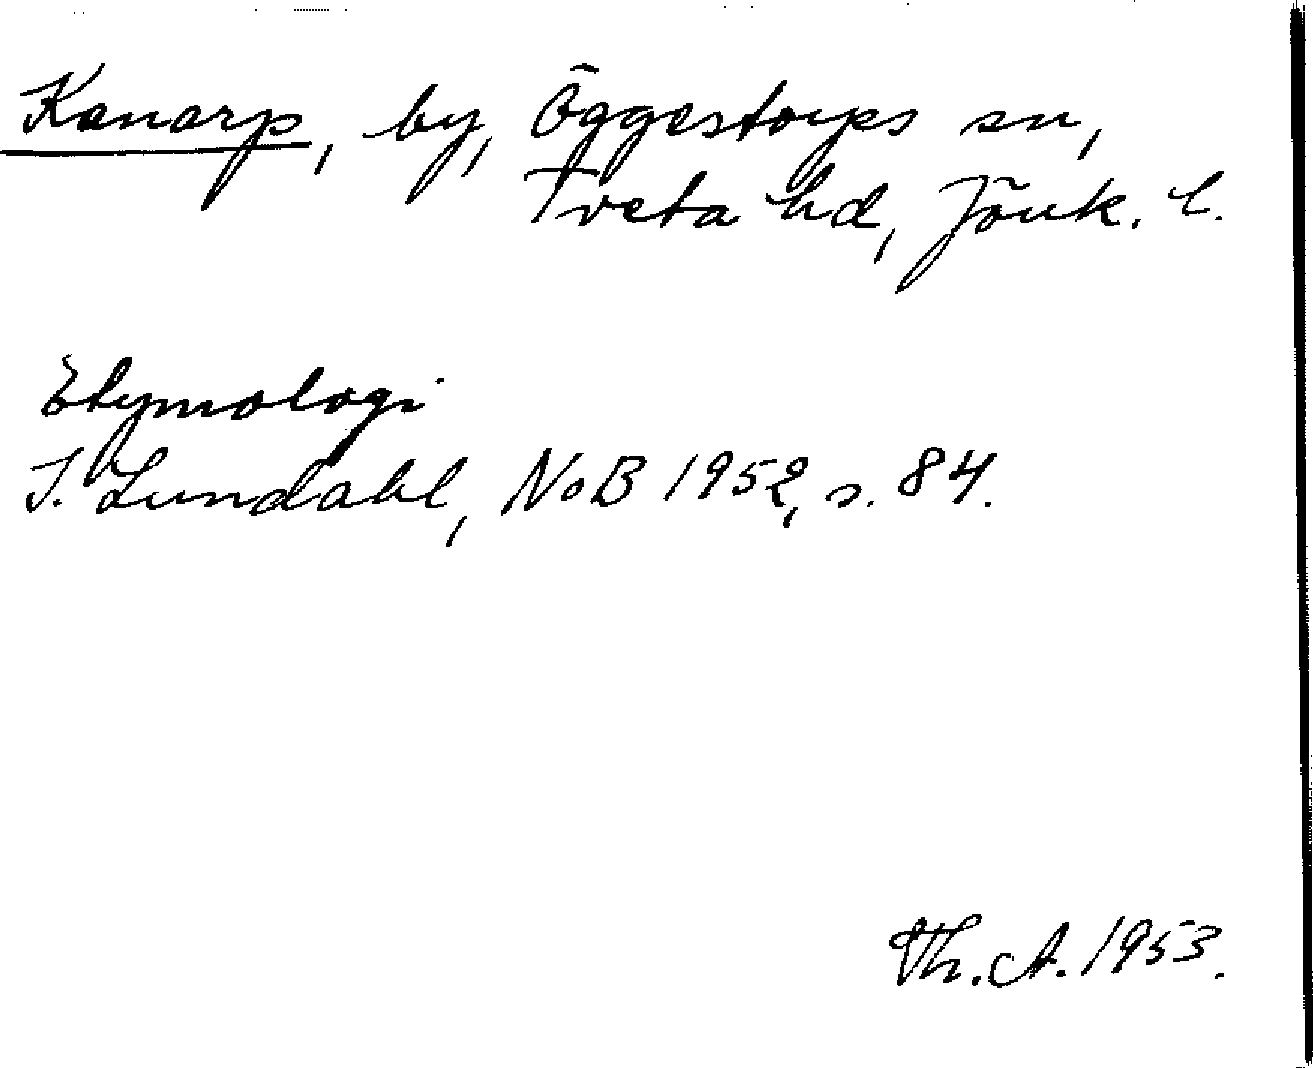 Kanarp, by, Öggestorps sn,
Tveta hd, Jönk. l.
Etymologi
I. Lundahl, NoB 1952, s. 84.
Th. A. 1953.